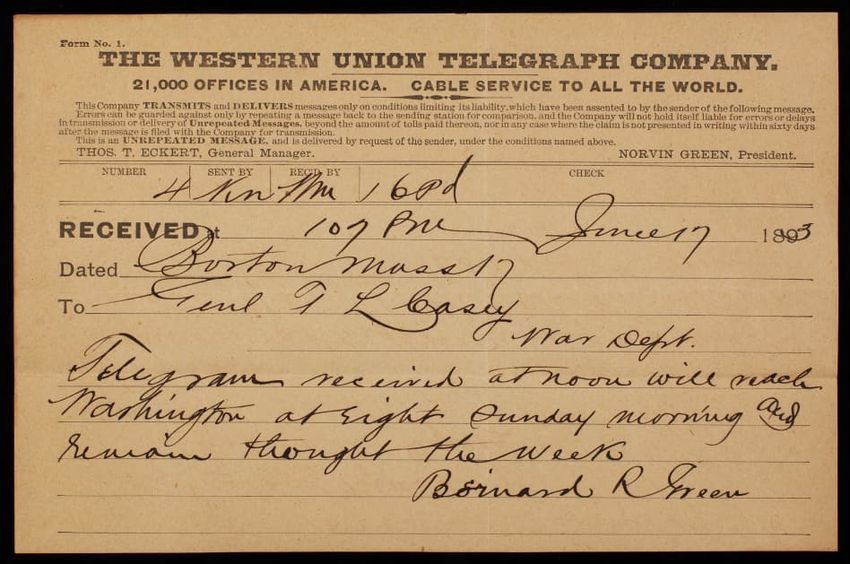 Form No. 1.
THE WESTERN UNION TELEGRAPH COMPANY.
21,000 OFFICES IN AMERICA. CABLE SERVICE TO ALL THE WORLD.
This Company TRANSMITS and DELIVERS messages only on conditions limiting its liability, which have been assented to by the sender of the following message.
Errors can be guarded against only by repeating a message back to the sending station for comparison, and the Company will not hold itself liable for errors or delays
in transmission or delivery of Unrepeated Messages, beyond the amount of tolls paid thereon, nor in any case where the claim is not presented in writing within sixty days
after the message is filed with the Company for transmission.
This is an UNREPEATED MESSAGE, and is delivered by request of the sender, under the conditions named above.
THOS. T. ECKERT, General Manager. NORVIN GREEN, President.
NUMBER SENT BY REC'D BY CHECK
4 Kn 16 Pd
RECEIVED at 107 PM June 17 1893
Dated Boston Mass 17
To Genl T L Casey
War Dept.
Telegram received at noon will reach
Washington at Eight Sunday morning and
remain thought the week
Bernard R Green